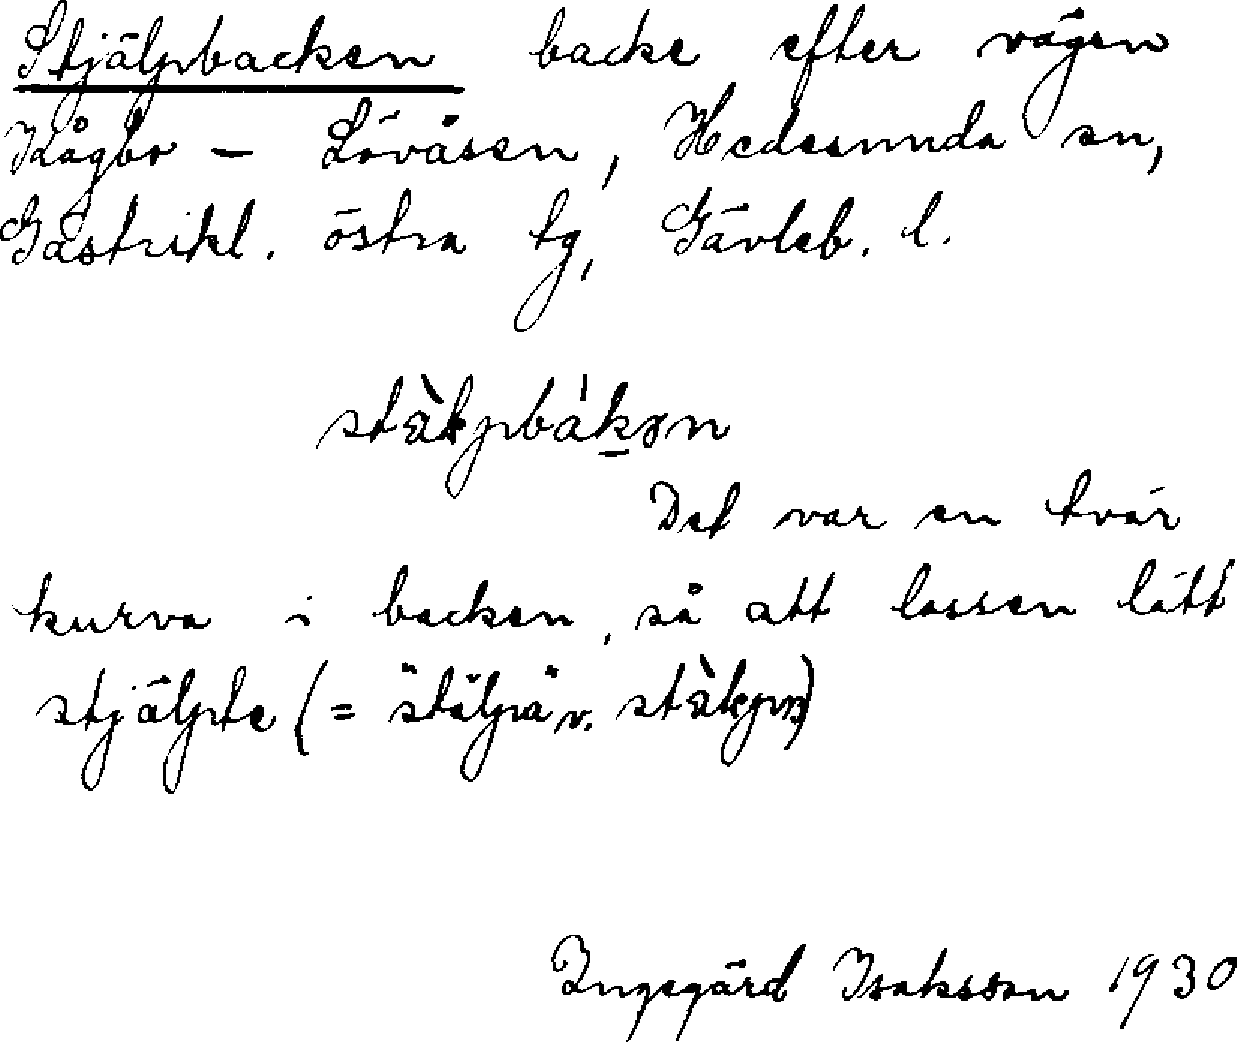 Stjälpbacken backe efter vägen
Kågbo – Lövåsen, Hedesunda sn,
Gästrikl. östra tg, Gävleb. l.
stàlpbákən
Det var en tvär
kurva i backen, så att lassen lätt
stjälpte (= "stälpa" v.
Ingegärd Isaksson 1930